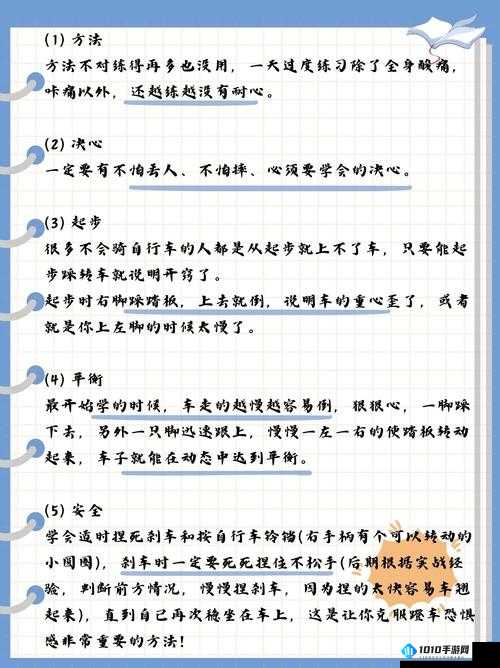 (1) 方法
方法不对练得再多也没用，一天过度练习除了全身酸痛，
咔痛以外，还越练越没有耐心。
(2) 决心
一定要有不怕丢人、不怕摔、心须要学会的决心。
(3) 起步
很多不会骑自行车的人都是从起步就上不了车，只要能起
步踩转车就说明开窍了。
起步时右脚踩踏板，上去就倒，说明车的重心歪了，或者
就是你上左脚的时候太慢了。
(4) 平衡
最开始学的时候，车走的越慢越容易倒，狠狠心，一脚踩
下去，另外一只脚迅速跟上，慢慢一左一右的使踏板转动
起来，车子就能在动态中达到平衡。
(5) 安全
学会适时捏死刹车和按自行车铃铛(右手柄有个可以转动的
小圆圈)，刹车时一定要死死捏住不松手(后期根据实战经
验，判断前方情况，慢慢捏刹车，因为捏的太快容易车翘
起来)，直到自己再次稳坐在车上，这是让你克服蹬车恐惧
感非常重要的方法!
1010手游网